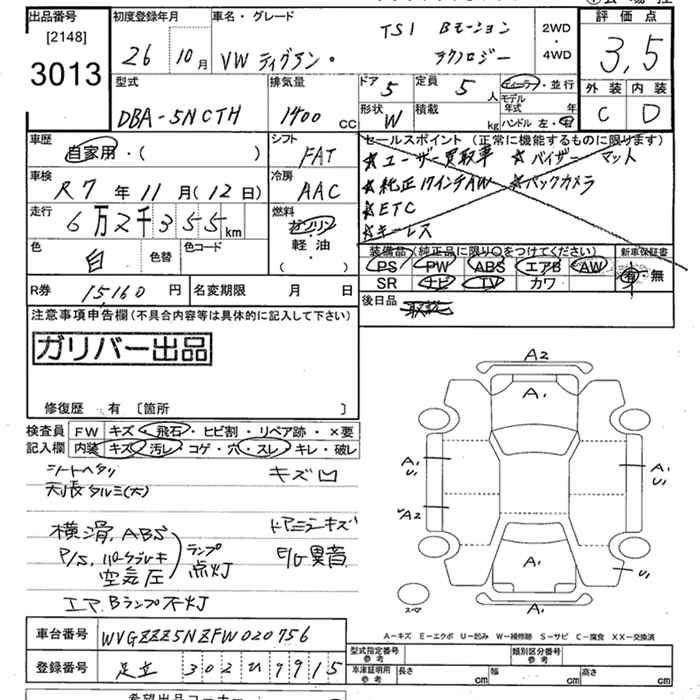 出品番号 初度登録年月 車名・グレード 評価点
[2148]
3013
26年 10月 VW ティグアン・ TSI Bモーション テクノロジー 2WD・4WD 3,5
型式 排気量 ドア 5 定員 5人 ディーラー・並行 外装 内装
DBA-5NCTH 1400 CC 形状 W 積載 kg モデル年式 年 ハンドル 左・右 C D
車歴 シフト セールスポイント (正常に機能するものに限ります)
自家用・( ) FAT ☆ユーザー買取車 ☆バイザー マット
車検 冷房 ☆純正17インチAW ☆バックカメラ
R7年 11月 (12日) AAC ☆ETC
走行 燃料 ☆キーレス
6万2千355km ガソリン
軽・油
( )
色 白 色替 色コード
装備品 (純正品に限り○をつけてください) 新車保証書
PS PW ABS エアB AW 有・無
SR ナビ TV カワ
R券 15160円 名変期限 月 日 後日品 取説
注意事項申告欄 (不具合内容等は具体的に記入して下さい)
ガリバー出品
修復歴 有 〔箇所 〕
検査員記入欄 FW キズ・飛石・ヒビ割・リペア跡・×要
内装 キズ・汚レ・コゲ・穴・スレ・キレ・破レ
シートヘタリ キズ凹
天張タルミ(大)
横滑. ABS ドアミラーキズ
P/S. パーキングブレーキ E/G異音
空気圧 ランプ点灯
エアBランプ不灯
A2
A1
A1 U1
A1 U1
A2
A1
U1
A1
スペア
A-キズ E-エクボ U-凹み W-補修跡 S-サビ C-腐食 XX-交換済
車台番号 WVGZZZ5NZFW020756
型式指定番号 参考 類別区分番号 参考
登録番号 足立 302
車庫証明用 参考 長さ cm 幅 cm 高さ cm
希望出品コーナー